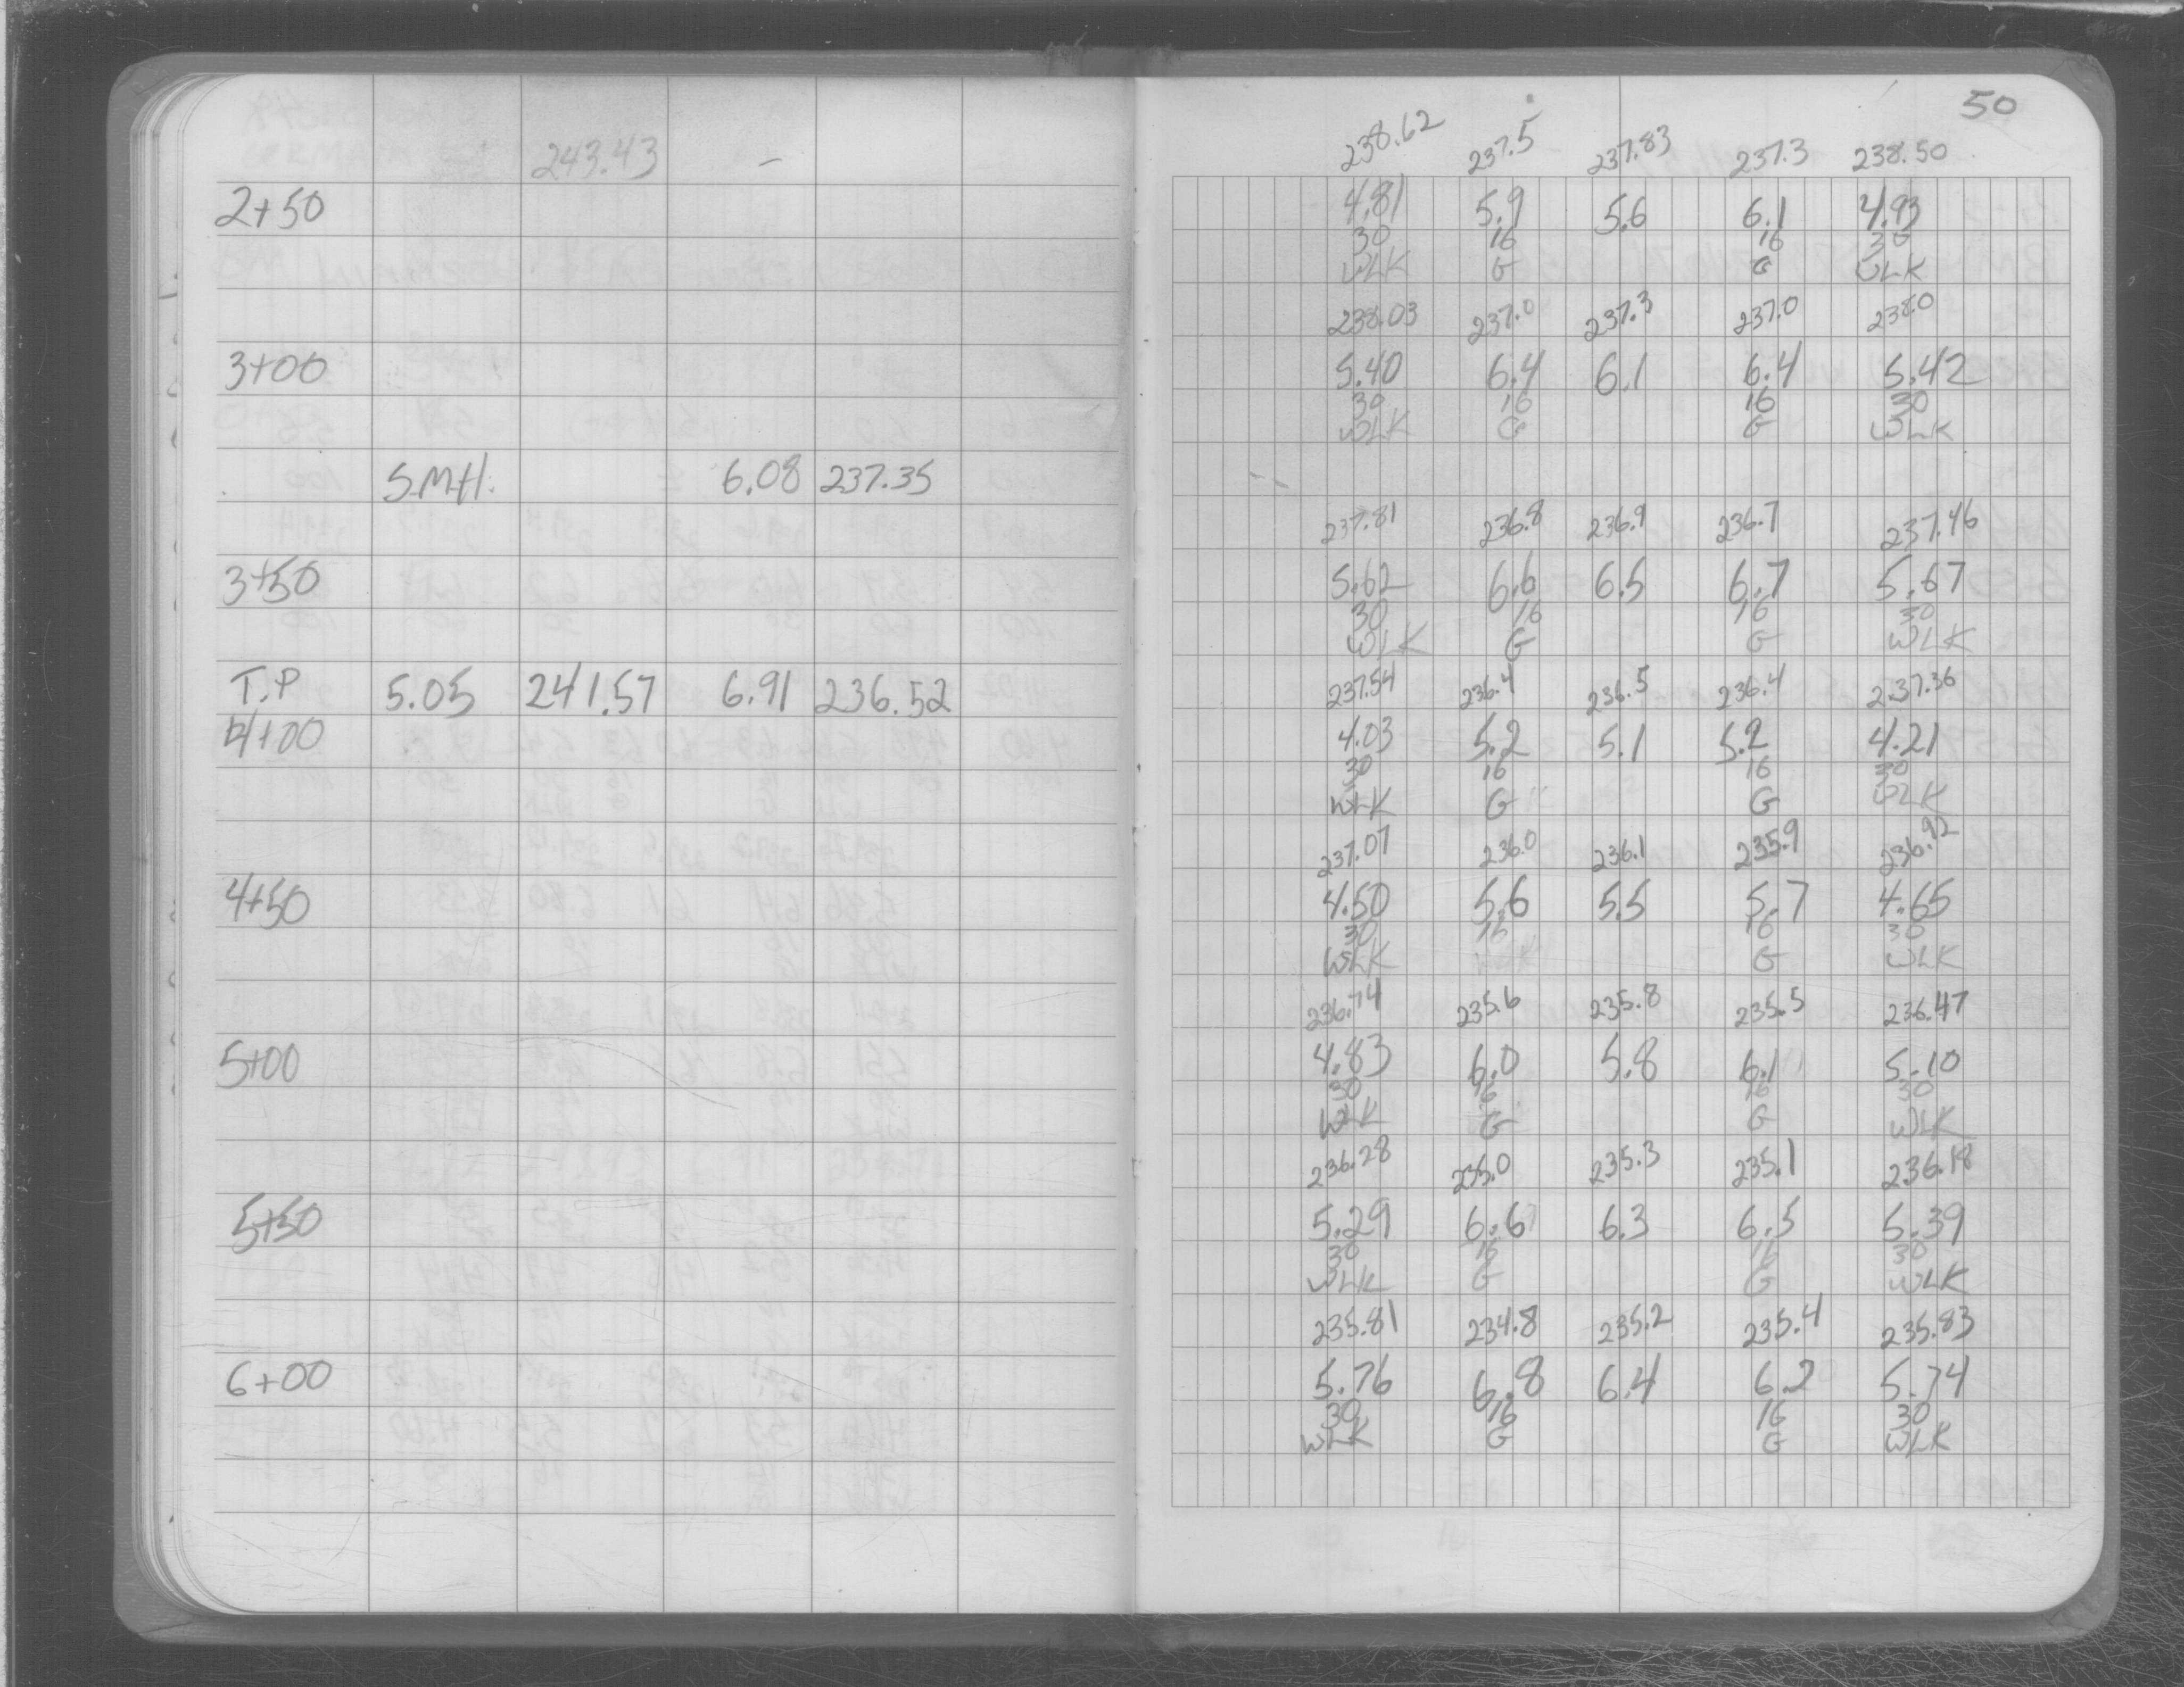 50
243.43 -
238.62 237.5 237.83 237.3 238.50
2+50 4.81 5.9 5.6 6.1 4.93
30 16 16 30
WLK G G WLK
238.03 237.0 237.3 237.0 238.0
3+00 5.40 6.4 6.1 6.4 5.42
30 16 16 30
WLK G G WLK
S.M.H. 6.08 237.35
237.81 236.8 236.9 236.7 237.46
3+50 5.62 6.6 6.5 6.7 5.67
30 16 16 30
WLK G G WLK
T.P 5.05 241.57 6.91 236.52 237.54 236.4 236.5 236.4 237.36
4+00 4.03 5.2 5.1 5.2 4.21
30 16 16 30
WLK G G WLK
237.07 236.0 236.1 235.9 236.92
4+50 4.50 5.6 5.5 5.7 4.65
30 16 16 30
WLK G WLK
236.74 235.6 235.8 235.5 236.47
5+00 4.83 6.0 5.8 6.1 5.10
30 16 16 30
WLK G G WLK
236.28 235.0 235.3 235.1 236.18
5+50 5.29 6.6 6.3 6.5 5.39
30 16 16 30
WLK G G WLK
235.81 234.8 235.2 235.4 235.83
6+00 5.76 6.8 6.4 6.2 5.74
30 16 16 30
WLK G G WLK